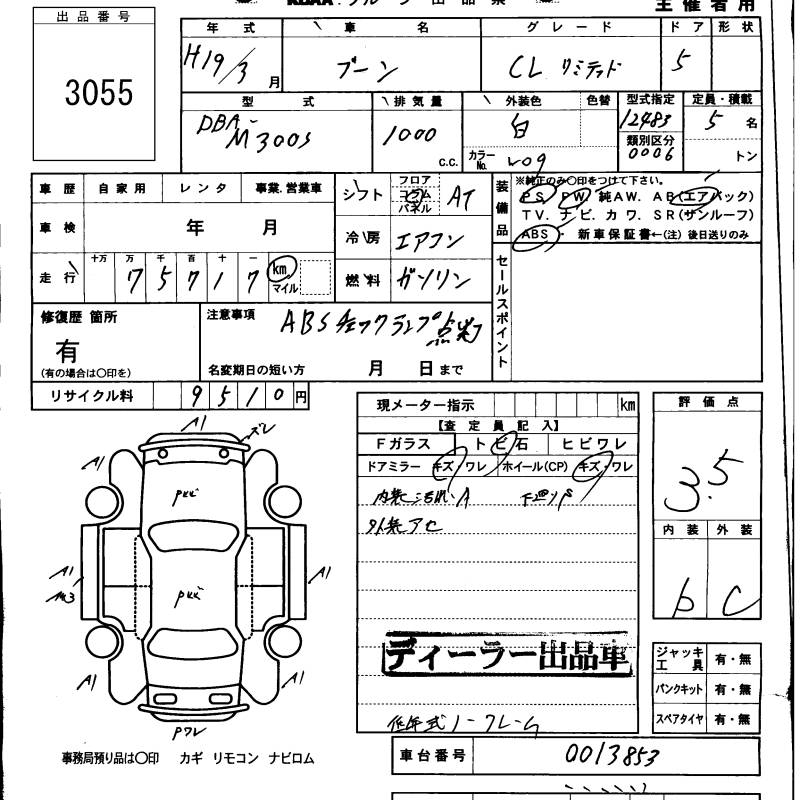 出品番号
3055
主催者用
年式 車名 グレード ドア 形状
H19/3月 ブーン CL リミテッド 5
型式 排気量 外装色 色替 型式指定 定員・積載
DBA-M300S 1000 c.c. 白 12483 5名
カラーNo. W09 類別区分 0006 トン
車歴 自家用 レンタ 事業.営業車
シフト フロア コラム パネル AT
装備品
※純正のみ〇印をつけて下さい。
PS PW 純AW. AB(エアバック)
TV. ナビ. カワ. SR(サンルーフ)
ABS・ 新車保証書←(注) 後日送りのみ
車検 年 月
冷房 エアコン
走行 十万 万 千 百 十 一
7 5 7 1 7 km マイル
燃料 ガソリン
セールスポイント
修復歴 箇所
有
(有の場合は〇印を)
注意事項 ABSチェックランプ点灯
名変期日の短い方 月 日まで
リサイクル料 9 5 1 0 円
現メーター指示 km
【査定員記入】
Fガラス トビ石 ヒビワレ
ドアミラー キズ・ワレ ホイール(CP) キズ・ワレ
内装ヨゴレ・A 下廻りサビ
外装アセ
評価点
3.5
内装 外装
b C
A1 ズレ
A1
A1 A1
A1 A1
Pワレ
ディーラー出品車
低年式ノークレーム
ジャッキ 工具 有・無
パンクキット 有・無
スペアタイヤ 有・無
車台番号 0013853
事務局預り品は〇印 カギ リモコン ナビロム